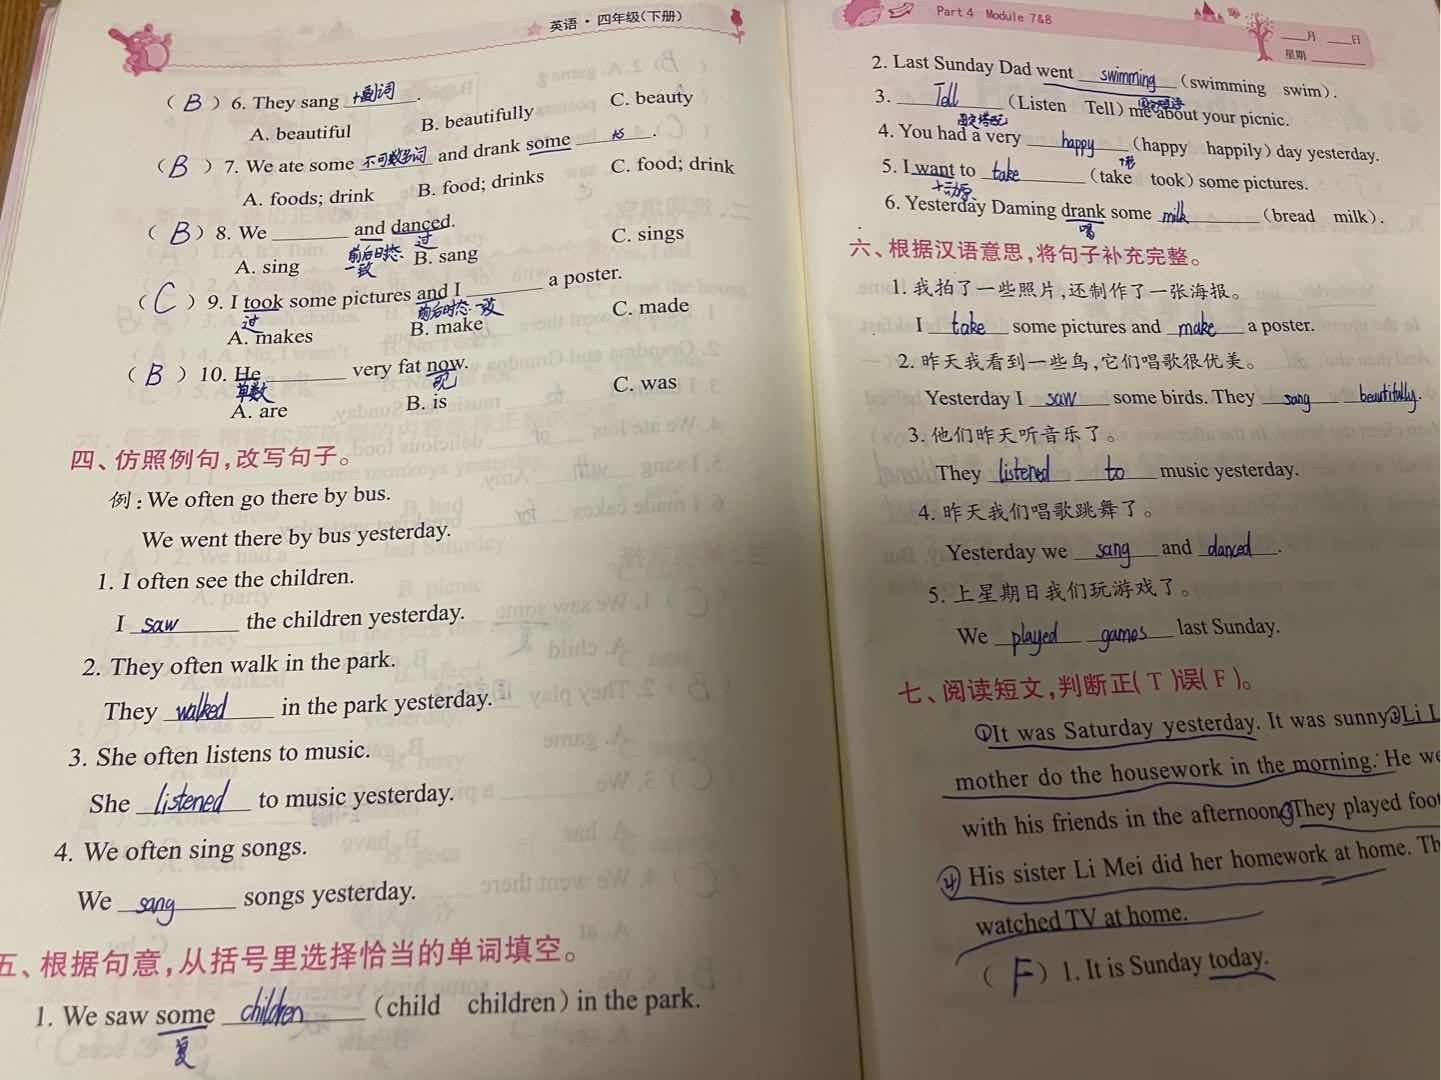 英语·四年级(下册)
( B ) 6. They sang +副词.
A. beautiful B. beautifully C. beauty
( B ) 7. We ate some 不可数名词 and drank some ______.
A. foods; drink B. food; drinks C. food; drink
( B ) 8. We ______ and danced.
前后时态一致 过
A. sing B. sang C. sings
( C ) 9. I took some pictures and I ______ a poster.
过 前后时态一致
A. makes B. make C. made
( B ) 10. He ______ very fat now.
单数 现
A. are B. is C. was
四、仿照例句,改写句子。
例:We often go there by bus.
We went there by bus yesterday.
1. I often see the children.
I saw the children yesterday.
2. They often walk in the park.
They walked in the park yesterday.
3. She often listens to music.
She listened to music yesterday.
4. We often sing songs.
We sang songs yesterday.
五、根据句意,从括号里选择恰当的单词填空。
1. We saw some children (child children) in the park.
复
Part 4 Module 7&8
___月 ___日
星期 ______
2. Last Sunday Dad went swimming (swimming swim).
3. Tell (Listen Tell) me about your picnic.
固定搭配
4. You had a very happy (happy happily) day yesterday.
5. I want to take (take took) some pictures.
+动原
6. Yesterday Daming drank some milk (bread milk).
喝
六、根据汉语意思,将句子补充完整。
1. 我拍了一些照片,还制作了一张海报。
I take some pictures and make a poster.
2. 昨天我看到一些鸟,它们唱歌很优美。
Yesterday I saw some birds. They sang beautifully.
3. 他们昨天听音乐了。
They listened to music yesterday.
4. 昨天我们唱歌跳舞了。
Yesterday we sang and danced.
5. 上星期日我们玩游戏了。
We played games last Sunday.
七、阅读短文,判断正(T)误(F)。
①It was Saturday yesterday. It was sunny. ②Li L
mother do the housework in the morning. He we
with his friends in the afternoon. ③They played foot
④His sister Li Mei did her homework at home. Th
watched TV at home.
( F ) 1. It is Sunday today.